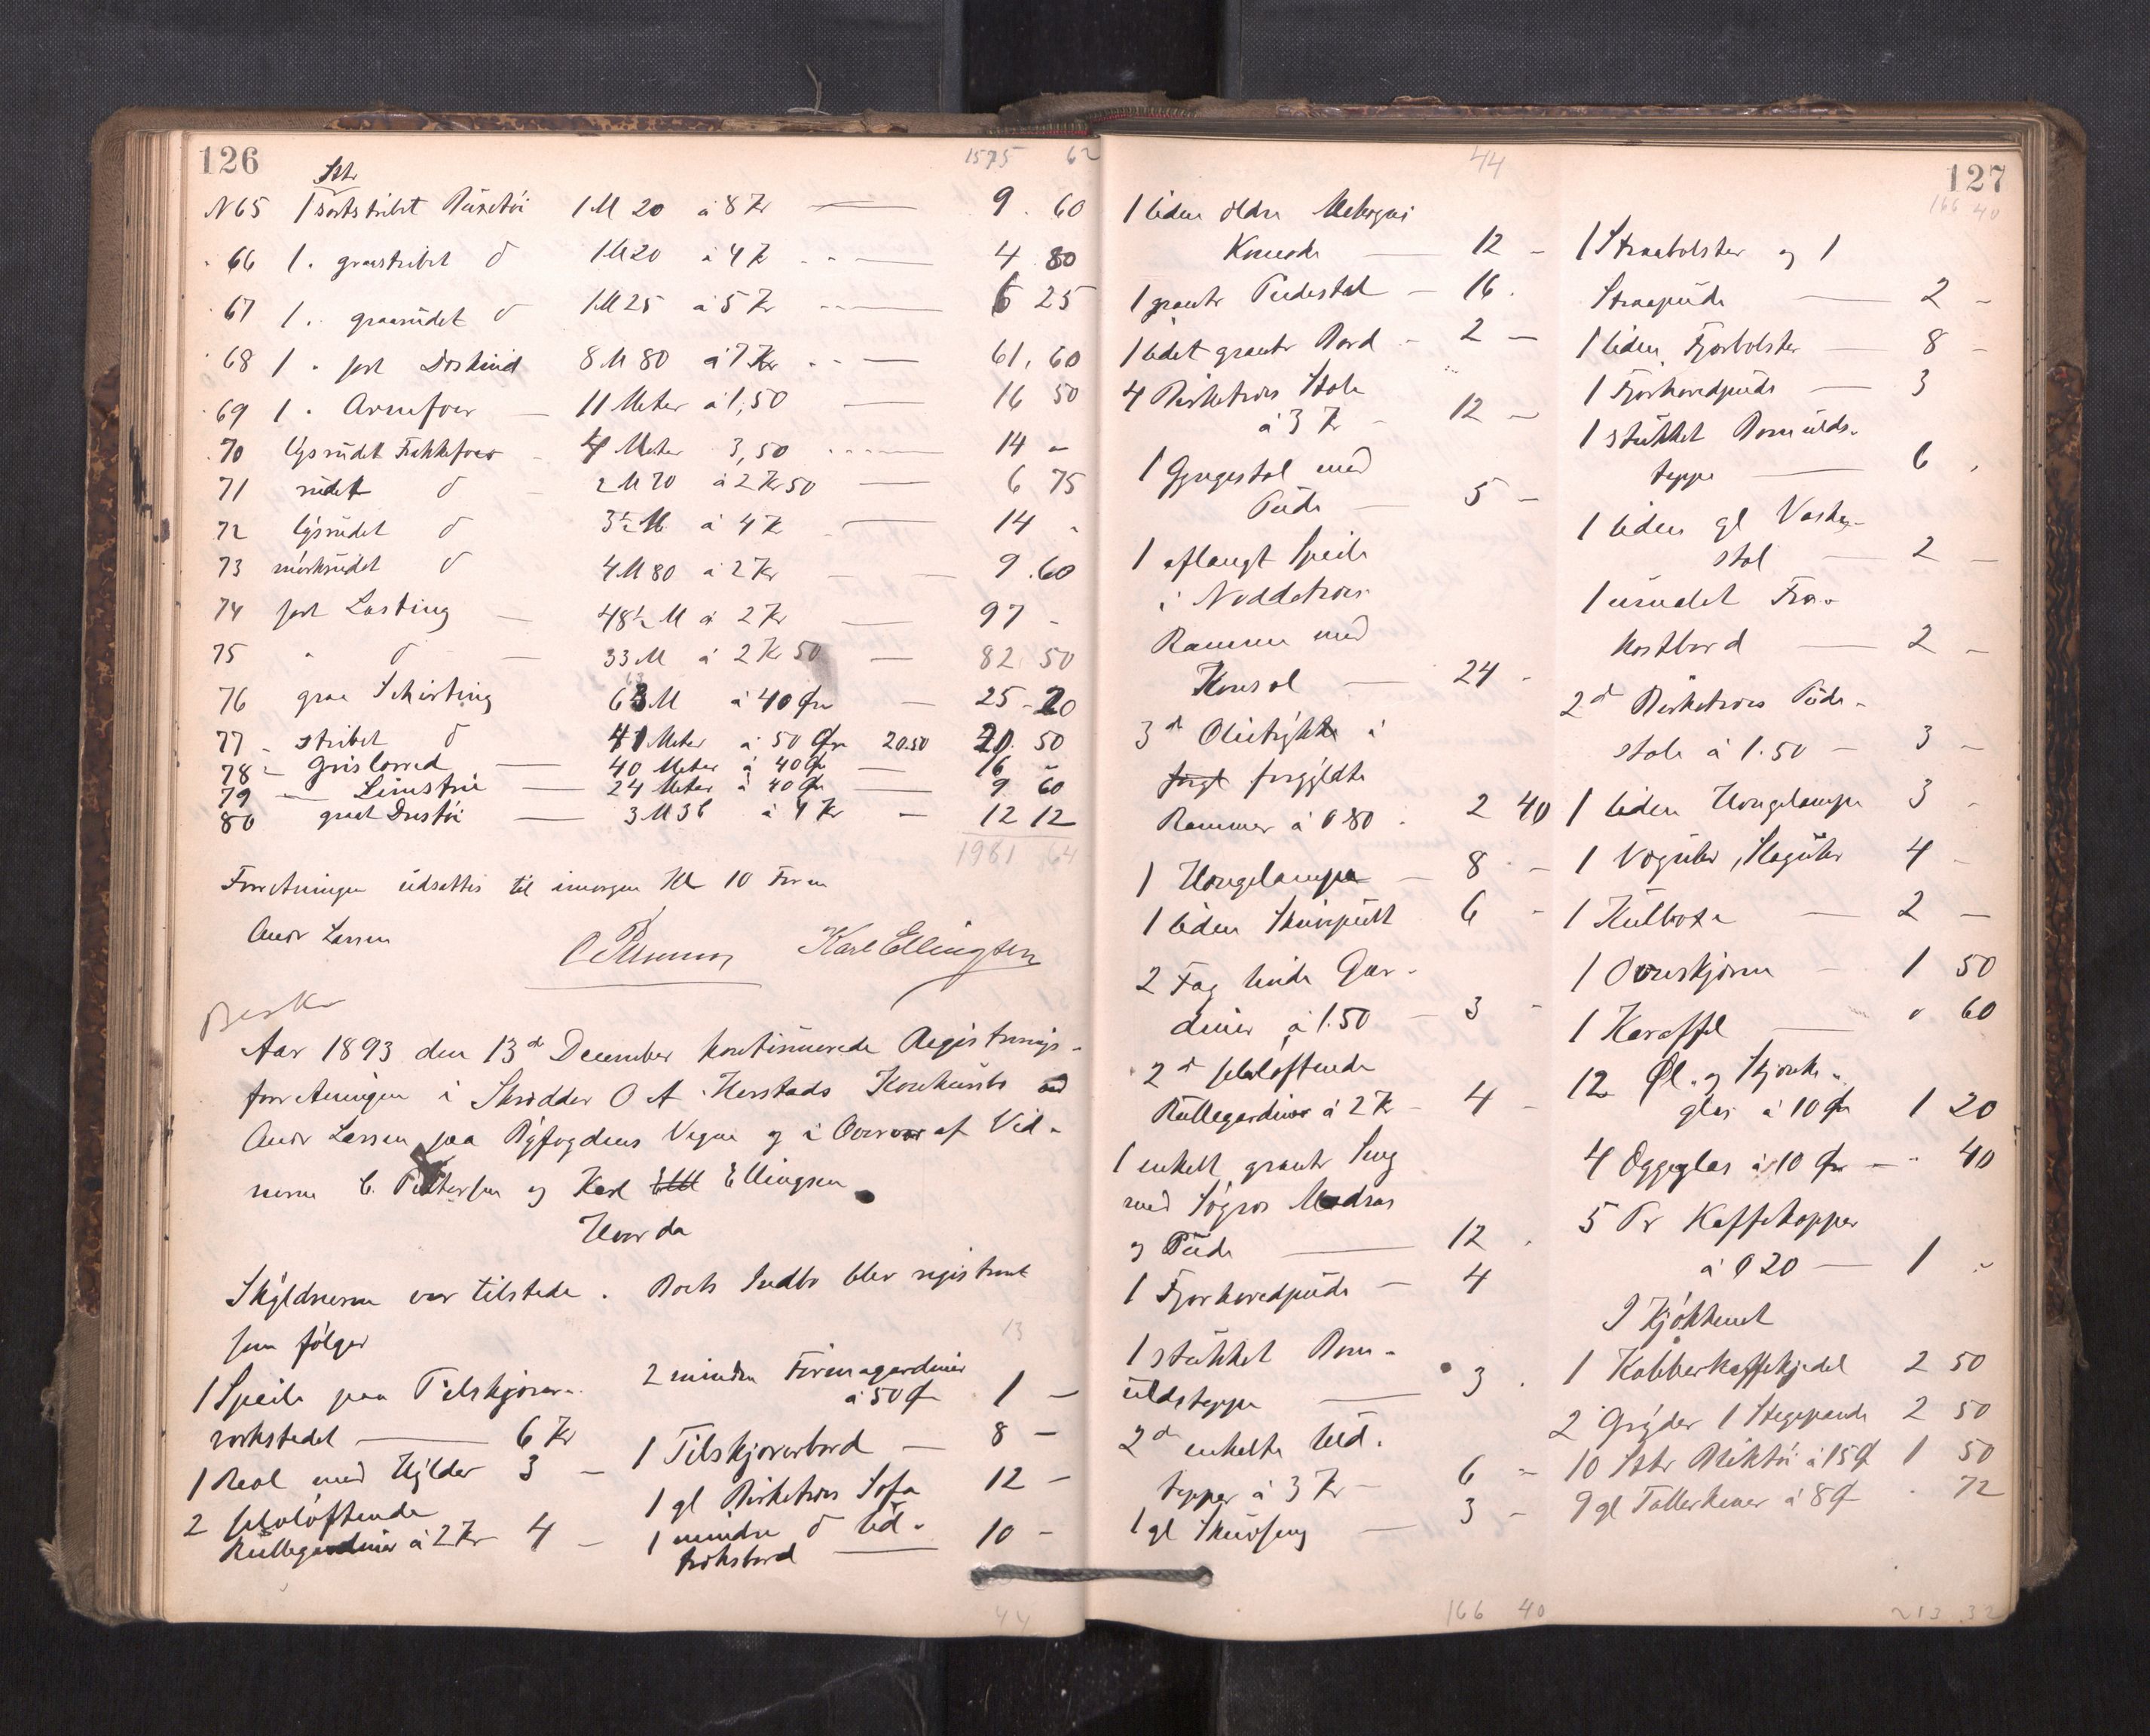 126
1575 62
Stk
N 65 1 sortstribet Buxetøi 1 M 20 à 8 Kr 9.60
66 1 " graastribet d 1 M 20 à 4 Kr 4 80
67 1 " graarudet d 1 M 25 à 5 Kr 6 25
68 1 " sort Doskind 8 M 80 à 7 Kr 61.60
69 1 " Armefoer 11 Meter à 1,50 16 50
70 lysrudet Frakkefoer 4 Meter 3,50 14 -
71 rudet d 2 M 70 à 2 Kr 50 6 75
72 lysrudet d 3½ M à 4 Kr 14 -
73 mørkrudet d 4 M 80 à 2 Kr 9.60
74 sort Lasting 48½ M à 2 Kr 97 -
75 " d 33 M à 2 Kr 50 82 50
76 graa Schirting 63 M à 40 Øre 25-20
77 - stribet d 41 Meter à 50 Øre 20.50 20.50
78 - 40 Meter à 40 Ø 16 -
79 - 24 Meter à 40 Øre 9 60
80 3 M 3 à 4 Kr 12 12
1981 64
Forretningen udsattes til imorgen Kl 10 Form
Andr Larsen C Pettersen Karl Ellingsen
Aar 1893 den 13de December kontinuerede Registrerings-
forretningen i Skrædder O A Herstads Konkursbo ved
Andr Larsen paa Byfogdens Vegne og i Overvær af Vid-
nerne C. Pettersen og Karl Ellingsen
Hvorda
Skyldneren var tilstede. Boets Indbo blev registreret
som følger
13
1 Speile paa Tilskjærer-
værkstedet 6 Kr
1 Reol med Hylder 3 -
2 selvløftende
Rullegardiner à 2 Kr 4 -
2 mindre Formagardiner
à 50 Ø 1 -
1 Tilskjærerbord 8 -
1 gl Birketræs Sofa 12 -
1 mindre d Ud-
træksbord 10 -
44
127
44
1 liden ældre Mahogni
Komode 12 -
1 grantr Pidestal 16.
1 lidet grantr Bord 2 -
4 Birketræs Stole
à 3 Kr 12 -
1 Gyngestol med
Pude 5 -
1 aflangt Speile
i Nøddetræs
Ramme med
Konsol 24 -
3de Olietrykte i
forgyldte
Rammer à 0 80 2 40
1 Hængelampe 8 -
1 liden Skrivpult 6 -
2 Fag hvide Gar-
diner à 1.50 3 -
2de selvløftende
Rullegardiner à 2 Kr 4 -
1 enkelt grantr Seng
med Søgræs Madras
og Pude 12.
1 Fjærhovedpude 4
1 stukket Bom-
uldsteppe 3.
2de enkelte Uld-
tepper à 3 Kr 6 -
1 gl Skuvseng 3 -
166 40
166 40
1 Straabolster og 1
Straapude 2 -
1 liden Fjærbolster 8 -
1 Fjærhovedpude 3
1 stukket Bomulds-
teppe 6.
1 liden gl Vaske-
stol 2 -
1 umalet Fro-
kostbord 2 -
2de Birketræs Pinde-
stole à 1.50 3 -
1 liden Hængelampe 3 -
1 Væguhr, Slaguhr 4 -
1 Kulboxe 2 -
1 Ovnskjærm 1 50
1 Karaffel " 60
12 Øl- og Skjænke-
glas à 10 Ø 1 20
4 Æggeglas à 10 Øre " 40
5 Pr Kaffekopper
à 0 20 1 -
I Kjøkkenet
1 Kobberkaffekjedel 2 50
2 Gryder 1 Stegepande 2 50
10 Stkr Bliktøi à 15 Ø 1 50
9 gl Tallerkener à 8 Ø " 72
213 32